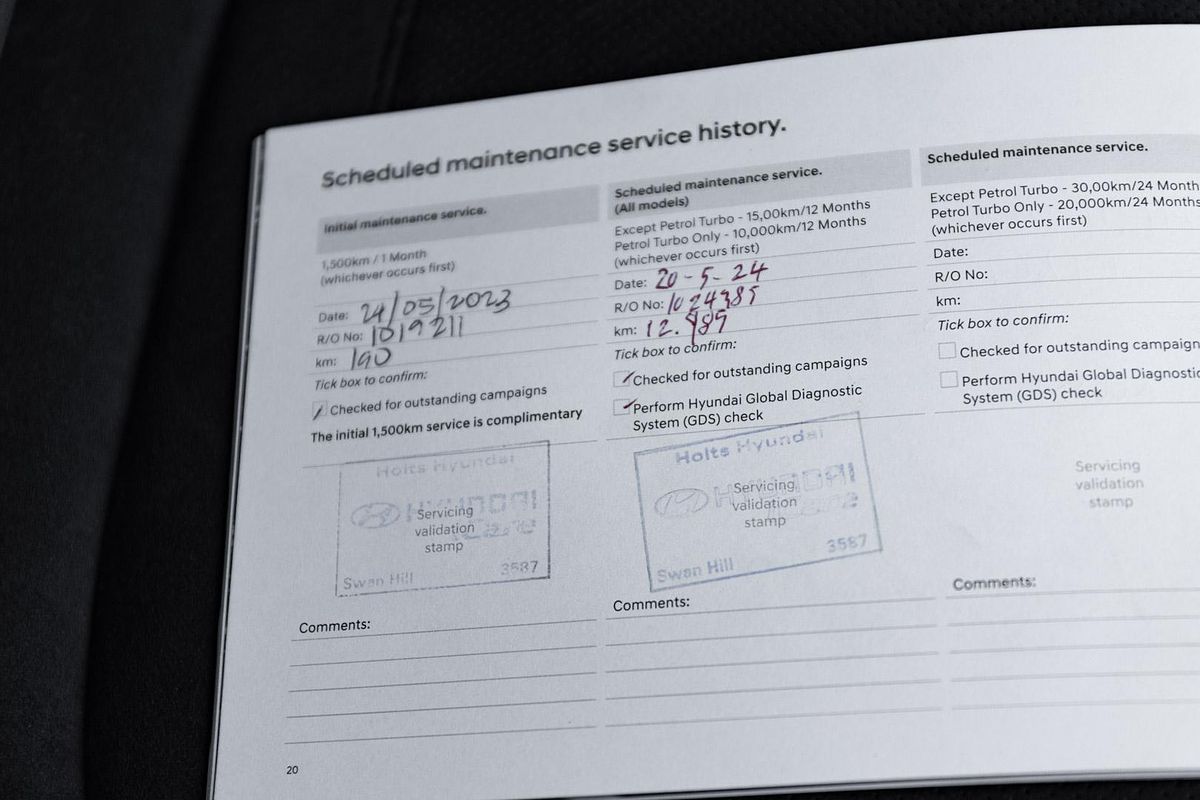 Scheduled maintenance service history.
Initial maintenance service.
1,500km / 1 Month
(whichever occurs first)
Date: 24/05/2023
R/O No: 1019211
km: 190
Tick box to confirm:
Checked for outstanding campaigns
The initial 1,500km service is complimentary
Holts Hyundai
HYUNDAI
Servicing
validation
stamp
Swan Hill 3587
Comments:
Scheduled maintenance service.
(All models)
Except Petrol Turbo - 15,00km/12 Months
Petrol Turbo Only - 10,000km/12 Months
(whichever occurs first)
Date: 20-5-24
R/O No: 1024385
km: 12.985
Tick box to confirm:
Checked for outstanding campaigns
Perform Hyundai Global Diagnostic
System (GDS) check
Holts Hyundai
HYUNDAI
Servicing
validation
stamp
Swan Hill 3587
Comments:
Scheduled maintenance service.
Except Petrol Turbo - 30,00km/24 Month
Petrol Turbo Only - 20,000km/24 Months
(whichever occurs first)
Date:
R/O No:
km:
Tick box to confirm:
Checked for outstanding campaign
Perform Hyundai Global Diagnostic
System (GDS) check
Servicing
validation
stamp
Comments:
20